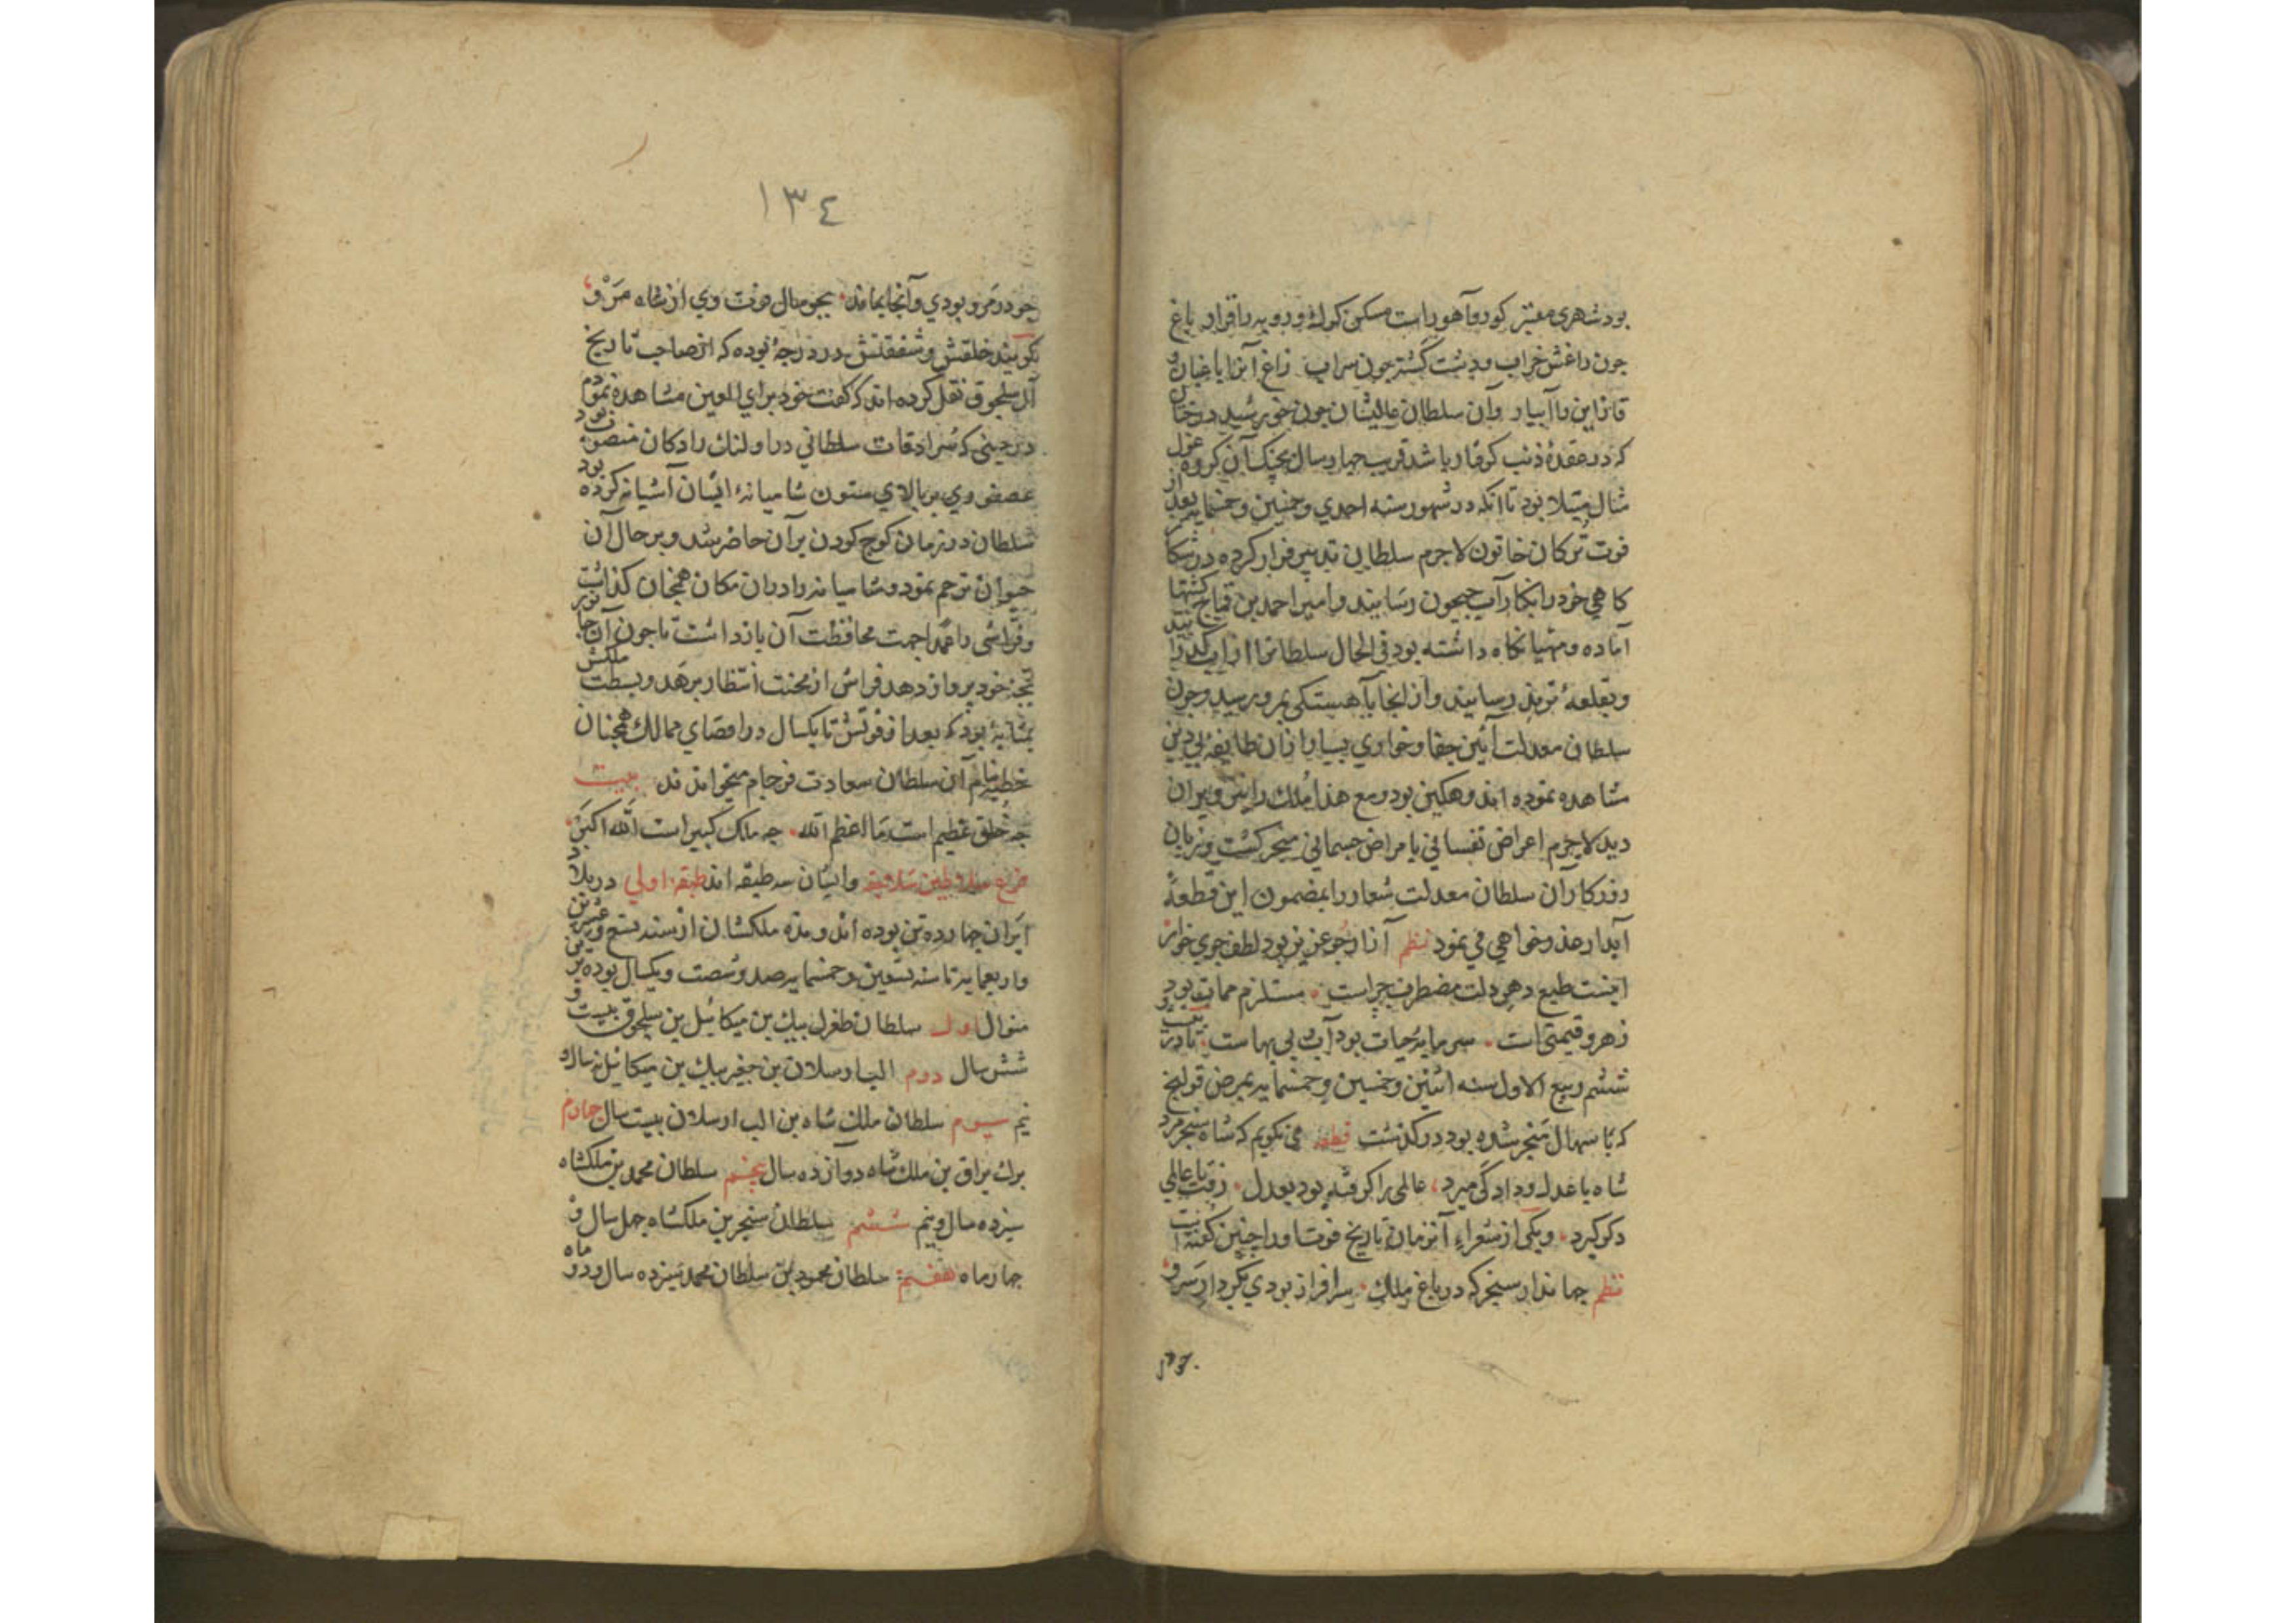 بود شهری معتبر کور و آهو راست مسکن کرک و روبه را قرار باغ
چون داغش خراب و دشت کشته چون سراب زاغ آنرا باغبان و
قاز این را آبیار وان سلطان عالیشان چون خورشید درخشان
که در عقدهٔ ذنب کرفتار باشد قریب چهار سال بچنک آن کروه غول
مثال مبتلا بود تا انکه در شهور سنه احدی و خمسین و خمسمایه بعد از
فوت ترکان خاتون لاجرم سلطان تدبیر فرار کرده در شکار
کاهی خود را بکنار آب جیحون رسانید و امیر احمد بن قماج کشتیها
آماده و مهیا نکاه داشته بود فی الحال سلطانرا از آب کذرانید
و بقلعهٔ ترمذ رسانید و از انجا بآهستکی بمرو رسید و چون
سلطان معدلت آئین جفا و خواری بسیار از ان طایفهٔ بی دین
مشاهده نموده اند وهکین بود و مع هذا ملک را نیز ویران
دید لاجرم اعراض نفسانی بامراض جسمانی منجر کشت و زبان
روزکار آن سلطان معدلت شعار را بمضمون این قطعهٔ
آبدار عذر خواهی می نمود نظم آزار جو عزیز بود لطف جوی خوار
اینست طبع دهر دلت مضطرب چراست مستلزم ممات بود
زهر و قیمتی است سرمایه حیات بود آب بی بهاست تا در بیست و
ششم ربیع الاول سنه اثنین و خمسین و خمسمایه بمرض قولنج
که باسهال منجر شده بود در کذشت قطعه می نکویم که شاه سنجر مرد
شاه با عدل و داد کی میرد عالمی را کرفته بود بعدل رفت تا عالمی
دکر کیرد و یکی از شعراء آنزمان تاریخ فوت او را چنین کفته است
نظم جهاندار سنجر که در باغ ملک سرافراز بودی بکردار سرو
چو در مرو بودی و آنجا بماند بجو سال فوت وی از شاه مرو
کویند خلقش و شفقتش در درجهٔ بوده که از صاحب تاریخ
آل سلجوق نقل کرده اند که کفت خود برای العین مشاهده نمودم
در حینی که سرادقات سلطانی در اولنک رادکان منصوب بود
عصفوری بر بالای ستون شامیانهٔ ایشان آشیانه کرده بود
سلطان در زمان کوچ کردن بر آن حاضر شد و بر حال آن
حیوان ترحم نمود و شامیانه را در ان مکان همچنان کذاشت
و فراشی را عمدا جهت محافظت آن بازداشت تا چون آن جانور
بچهٔ خود پرواز دهد فراش از محنت انتظار برهد و بسطت ملکش
بمثابهٔ بود که بعد از فوتش تا یکسال در اقصای ممالک همچنان
خطبه بنام آن سلطان سعادت فرجام میخواندند بیت
چه خلق عظیم است ما اعظم الله چه ملک کبیر است الله اکبر
فرع سلاطین سلاجقه و ایشان سه طبقه اند طبقهٔ اولی در بلاد
ایران چهارده تن بوده اند و مدة ملکشان از سنه تسع و عشرین
و اربعمایه تا سنه تسعین و خمسمایه صد و شصت و یکسال بوده برین
منوال اول سلطان طغرل بیک بن میکائیل بن سلجوق بیست و
شش سال دوم الب ارسلان بن جغر بیک بن میکائیل نه سال و
نیم سیوم سلطان ملک شاه بن الب ارسلان بیست سال چهارم
برک یراق بن ملک شاه دوازده سال پنجم سلطان محمد بن ملکشاه
سیزده سال و نیم ششم سلطان سنجر بن ملکشاه چهل سال و
چهار ماه هفتم سلطان محمود بن سلطان محمد سیزده سال و دو ماه
١٣٤